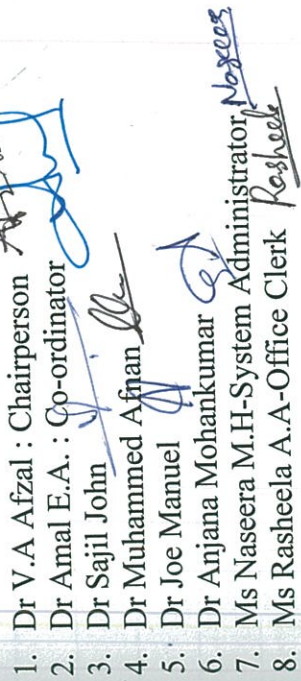 1. Dr V.A Afzal : Chairperson
2. Dr Amal E.A. : Co-ordinator
3. Dr Sajil John
4. Dr Muhammed Afnan
5. Dr Joe Manuel
6. Dr Anjana Mohankumar
7. Ms Naseera M.H-System Administrator Naseera
8. Ms Rasheela A.A-Office Clerk Rasheela